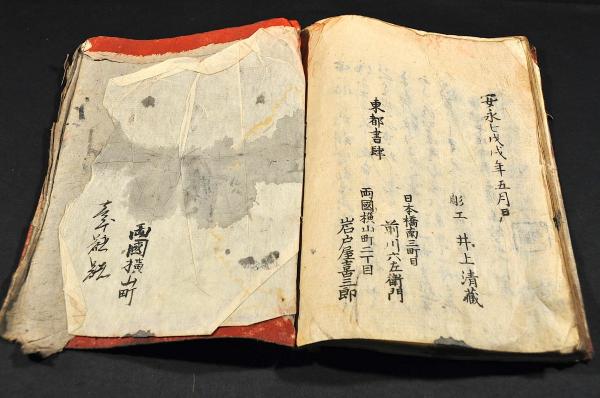 安永七戊戌年五月日
彫工 井上清藏
東都書肆
日本橋南三町目
前川六左衛門
両國横山町二丁目
岩戸屋喜三郎
両國横山町